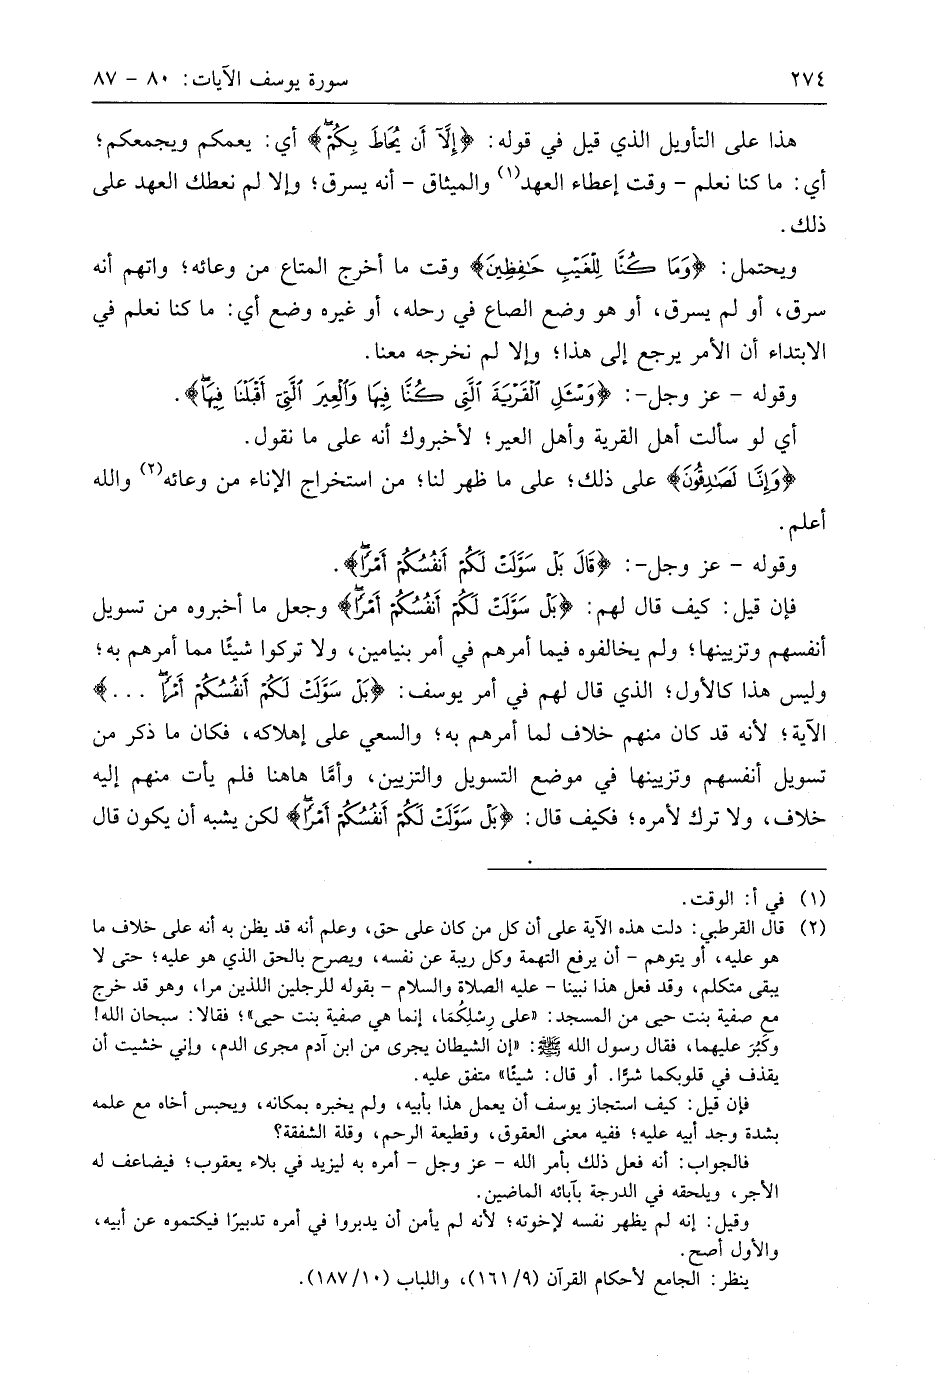 ٢٧٤ سورة يوسف الآيات: ٨٠ - ٨٧
هذا على التأويل الذي قيل في قوله: ﴿إِلَّآ أَن يُحَاطَ بِكُمْۖ﴾ أي: يعمكم ويجمعكم؛
أي: ما كنا نعلم - وقت إعطاء العهد(١) والميثاق - أنه يسرق؛ وإلا لم نعطك العهد على
ذلك.
ويحتمل: ﴿وَمَا كُنَّا لِلْغَيْبِ حَٰفِظِينَ﴾ وقت ما أخرج المتاع من وعائه؛ واتهم أنه
سرق، أو لم يسرق، أو هو وضع الصاع في رحله، أو غيره وضع أي: ما كنا نعلم في
الابتداء أن الأمر يرجع إلى هذا؛ وإلا لم نخرجه معنا.
وقوله - عز وجل-: ﴿وَسْـَٔلِ ٱلْقَرْيَةَ ٱلَّتِى كُنَّا فِيهَا وَٱلْعِيرَ ٱلَّتِىٓ أَقْبَلْنَا فِيهَاۖ﴾.
أي لو سألت أهل القرية وأهل العير؛ لأخبروك أنه على ما نقول.
﴿وَإِنَّا لَصَٰدِقُونَ﴾ على ذلك؛ على ما ظهر لنا؛ من استخراج الإناء من وعائه(٢) والله
أعلم.
وقوله - عز وجل-: ﴿قَالَ بَلْ سَوَّلَتْ لَكُمْ أَنفُسُكُمْ أَمْرًاۖ﴾.
فإن قيل: كيف قال لهم: ﴿بَلْ سَوَّلَتْ لَكُمْ أَنفُسُكُمْ أَمْرًاۖ﴾ وجعل ما أخبروه من تسويل
أنفسهم وتزيينها؛ ولم يخالفوه فيما أمرهم في أمر بنيامين، ولا تركوا شيئًا مما أمرهم به؛
وليس هذا كالأول؛ الذي قال لهم في أمر يوسف: ﴿بَلْ سَوَّلَتْ لَكُمْ أَنفُسُكُمْ أَمْرًاۖ ...﴾
الآية؛ لأنه قد كان منهم خلاف لما أمرهم به؛ والسعي على إهلاكه، فكان ما ذكر من
تسويل أنفسهم وتزيينها في موضع التسويل والتزيين، وأمَّا هاهنا فلم يأت منهم إليه
خلاف، ولا ترك لأمره؛ فكيف قال: ﴿بَلْ سَوَّلَتْ لَكُمْ أَنفُسُكُمْ أَمْرًاۖ﴾ لكن يشبه أن يكون قال
(١) في أ: الوقت.
(٢) قال القرطبي: دلت هذه الآية على أن كل من كان على حق، وعلم أنه قد يظن به أنه على خلاف ما
هو عليه، أو يتوهم - أن يرفع التهمة وكل ريبة عن نفسه، ويصرح بالحق الذي هو عليه؛ حتى لا
يبقى متكلم، وقد فعل هذا نبينا - عليه الصلاة والسلام - بقوله للرجلين اللذين مرا، وهو قد خرج
مع صفية بنت حيى من المسجد: «على رِسْلِكُمَا، إنما هي صفية بنت حيى»؛ فقالا: سبحان الله!
وكَبُرَ عليهما، فقال رسول الله ﷺ: «إن الشيطان يجرى من ابن آدم مجرى الدم، وإني خشيت أن
يقذف في قلوبكما شرًّا. أو قال: شيئًا» متفق عليه.
فإن قيل: كيف استجاز يوسف أن يعمل هذا بأبيه، ولم يخبره بمكانه، ويحبس أخاه مع علمه
بشدة وجد أبيه عليه؛ ففيه معنى العقوق، وقطيعة الرحم، وقلة الشفقة؟
فالجواب: أنه فعل ذلك بأمر الله - عز وجل - أمره به ليزيد في بلاء يعقوب؛ فيضاعف له
الأجر، ويلحقه في الدرجة بآبائه الماضين.
وقيل: إنه لم يظهر نفسه لإخوته؛ لأنه لم يأمن أن يدبروا في أمره تدبيرًا فيكتموه عن أبيه،
والأول أصح.
ينظر: الجامع لأحكام القرآن (١٦١/٩)، واللباب (١٨٧/١٠).